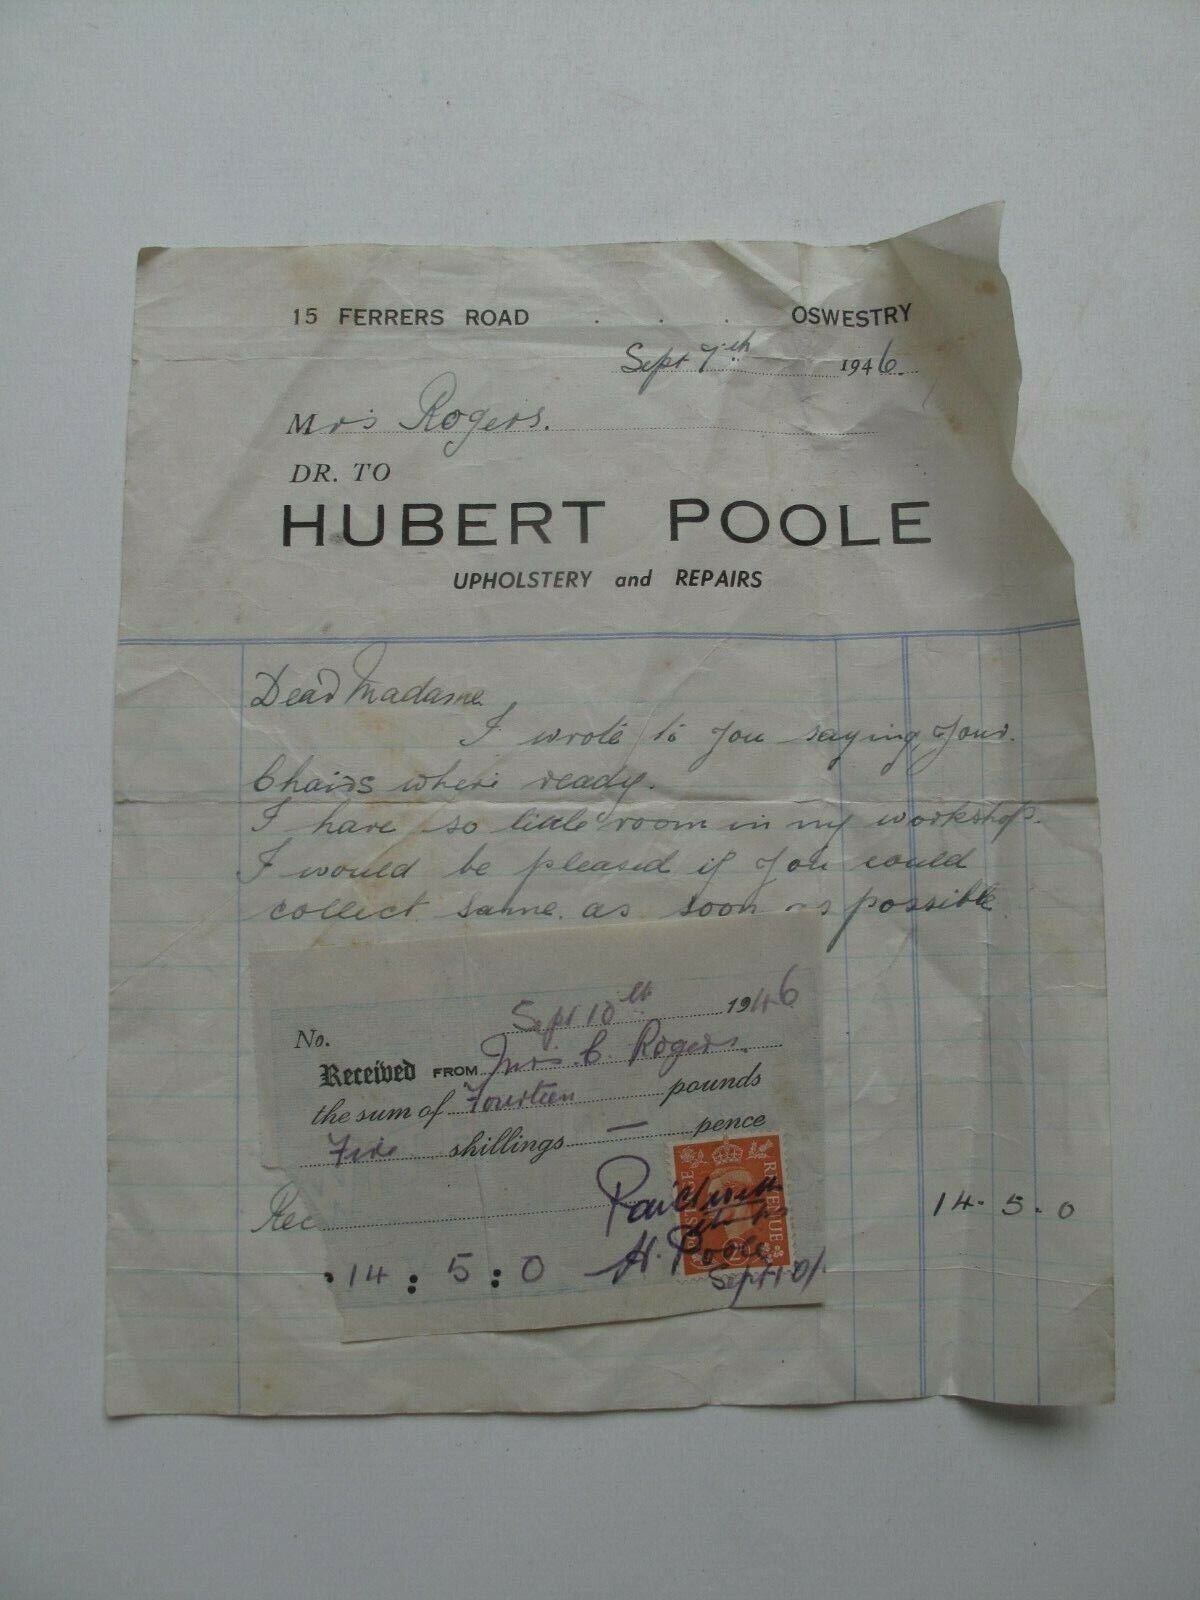 15 FERRERS ROAD . . . OSWESTRY
Sept 7th 1946.
Mrs Rogers.
DR. TO
HUBERT POOLE
UPHOLSTERY and REPAIRS
Dear Madame
I wrote to you saying your
Chairs where ready.
I have so little room in my workshop.
I would be pleased if you could
collect same as soon as possible
Sept 10th 1946
No.
Received FROM Mrs. C. Rogers.
the sum of Fourteen pounds
Five shillings — pence
REVENUE
Rec
Paid with
14 . 5 . 0
14 : 5 : 0
H. Poole
Sept 10/